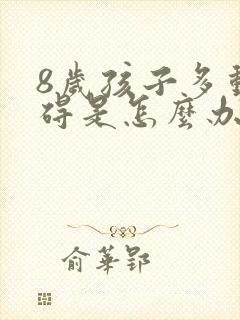 8歲孩子多動
碍是怎麼办
俞華郢